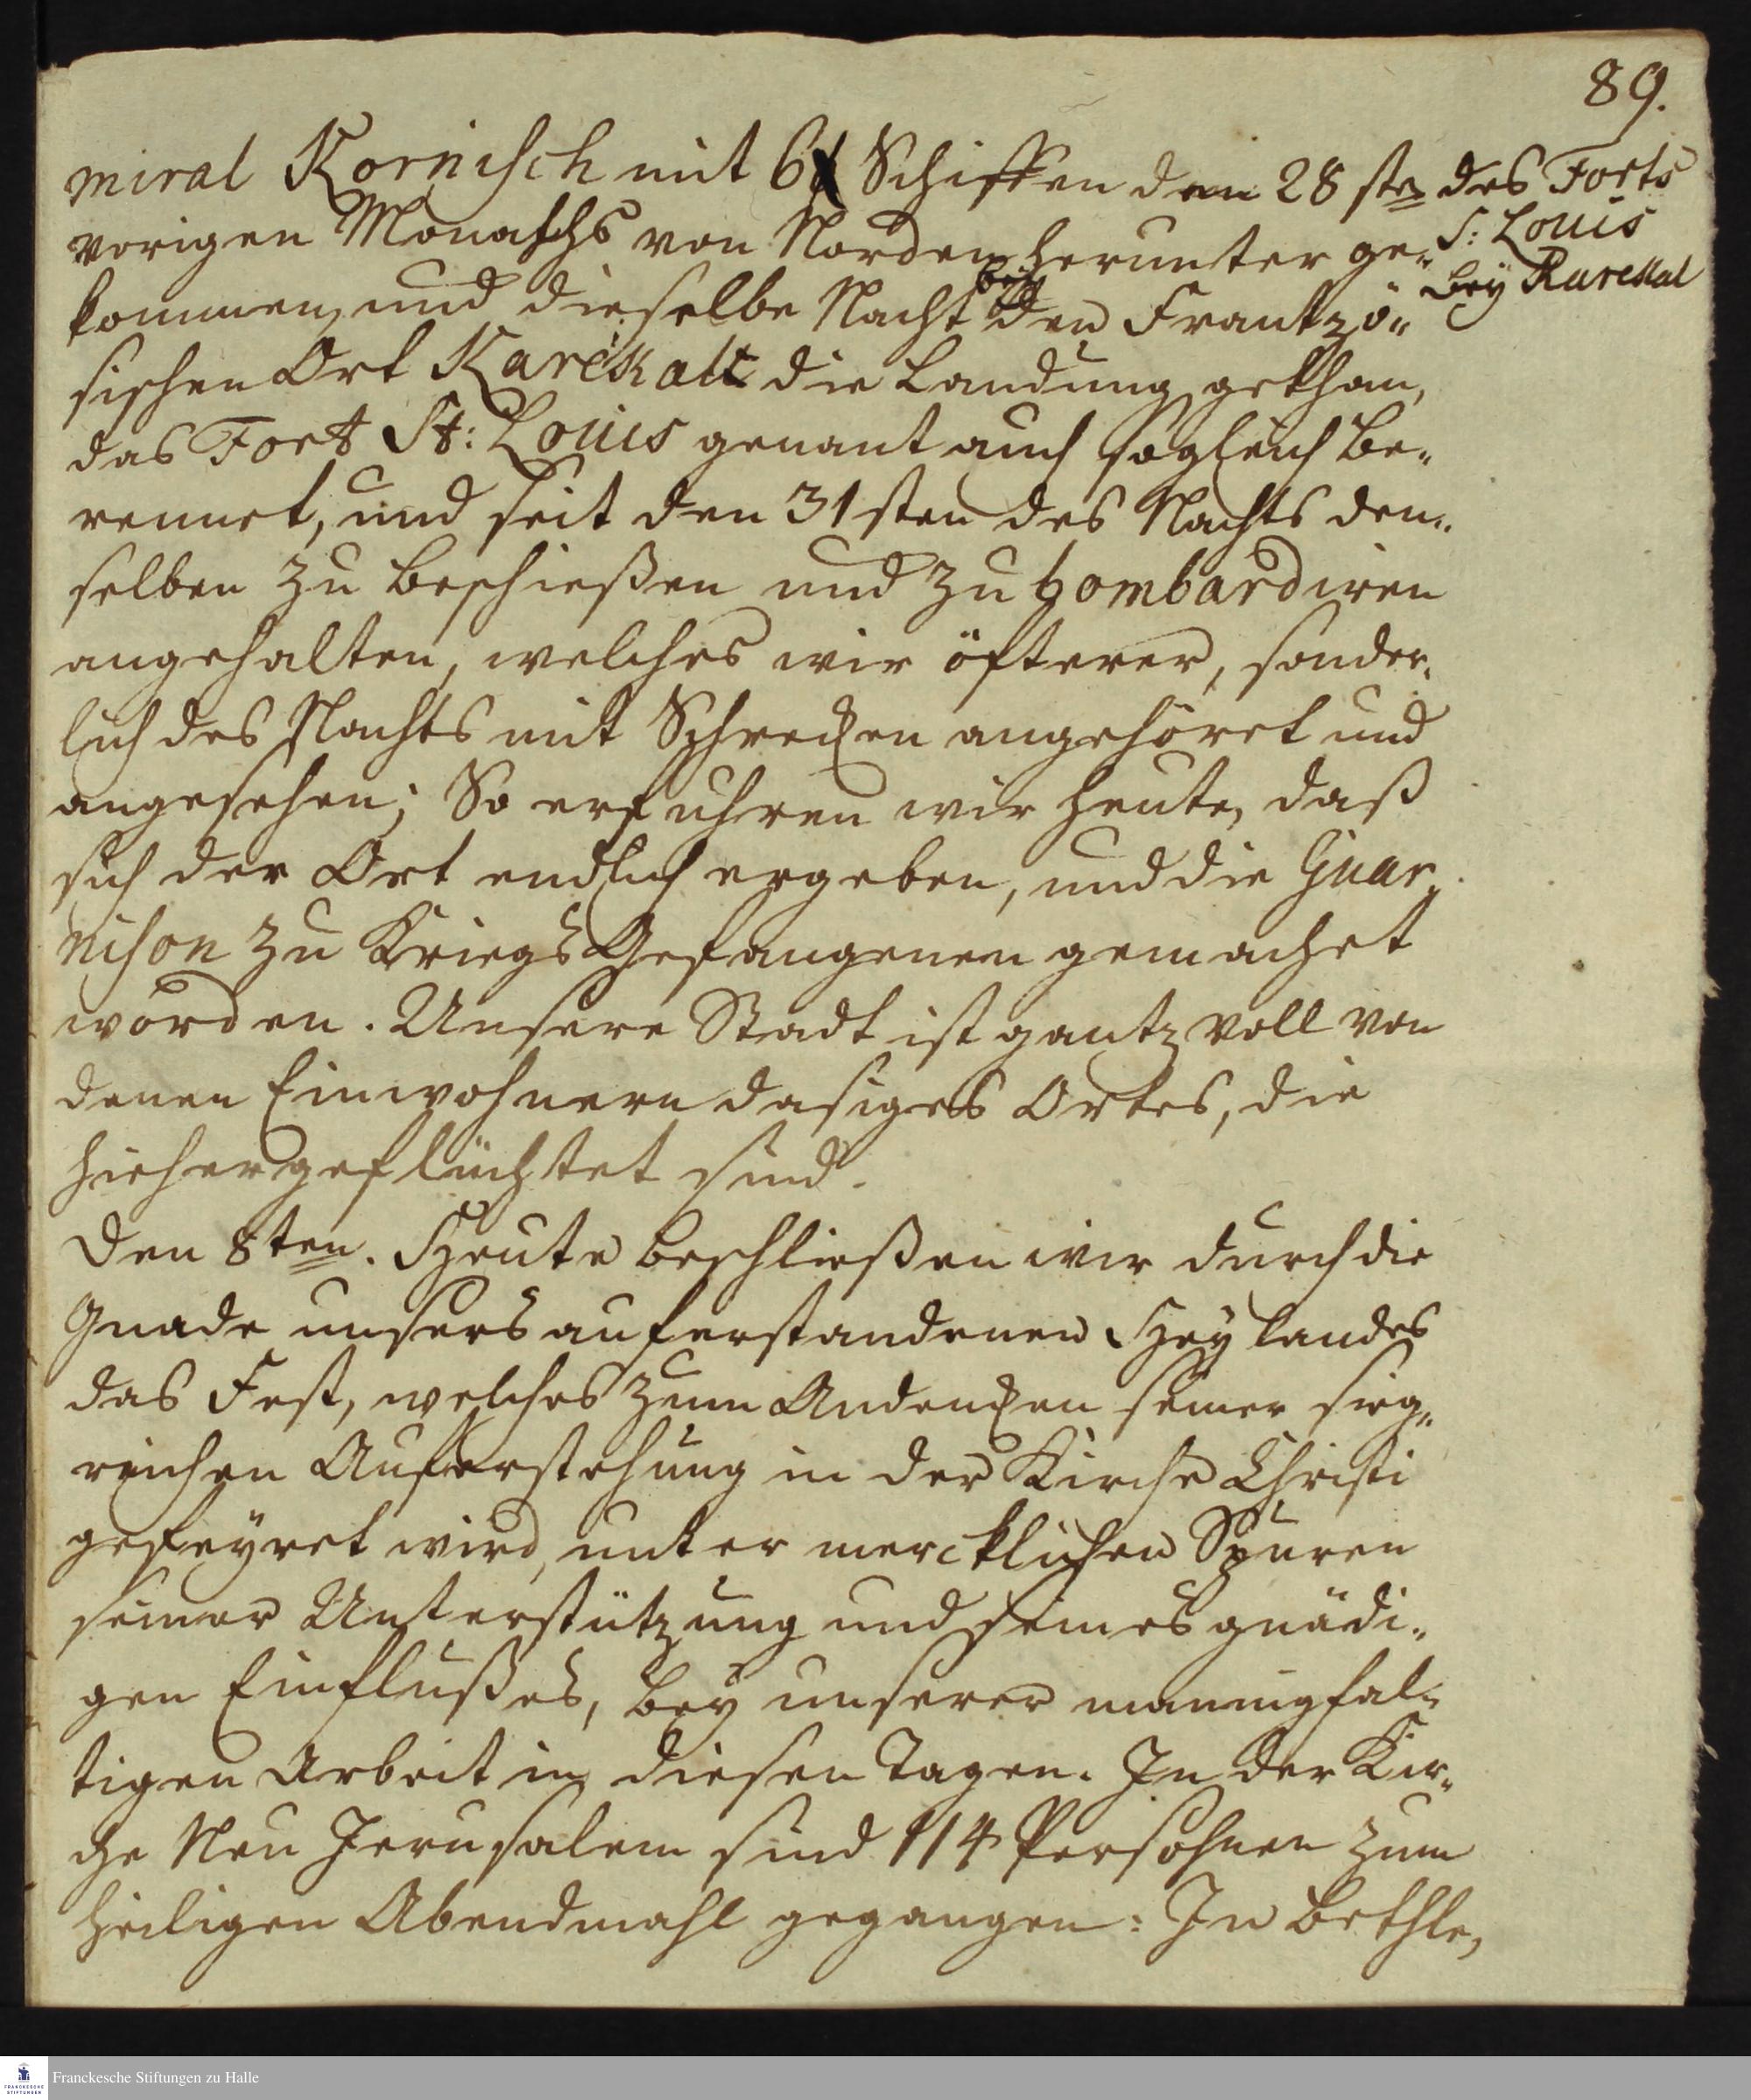 89.
miral Kornisch mit 6 Schiffen den 28 sten
vorigen Monaths von Norden herunter ge-
kommen, und dieselbe Nacht bey den Frantzö-
sischen Ort Karékall die Landung gethan,
das Fort St: Louis genant auch sogleich be-
rennet, und seit den 31sten des Nachts den-
selben zu beschießen und zu bombardiren
angehalten, welches wir öfterer, sonder-
lich des Nachts mit Schrecken angehöret und
angesehen; So erfuhren wir heute, daß
sich der Ort endlich ergeben, und die Guar-
nison zu Kriegs Gefangenen gemachet
worden. Unsere Stadt ist gantz voll von
denen Einwohnern dasiges Ortes, die
hieher geflüchtet sind.
Den 8ten. Heute beschließen wir durch die
Gnade unsers auferstandenen Heylandes
das Fest, welches zum Andencken seiner sieg-
reichen Auferstehung in der Kirche Christi
gefeyret wird, unter mercklichen Spuren
seiner Unterstützung und seines gnädi-
gen Einflußes, bey unserer mannigfal-
tigen Arbeit in diesen Tagen. In der Kir-
che Neu Jerusalem sind 114 Persohnen zum
heiligen Abendmahl gegangen: In Bethle,
des Forts
S: Louis
bey Karekal
Franckesche Stiftungen zu Halle